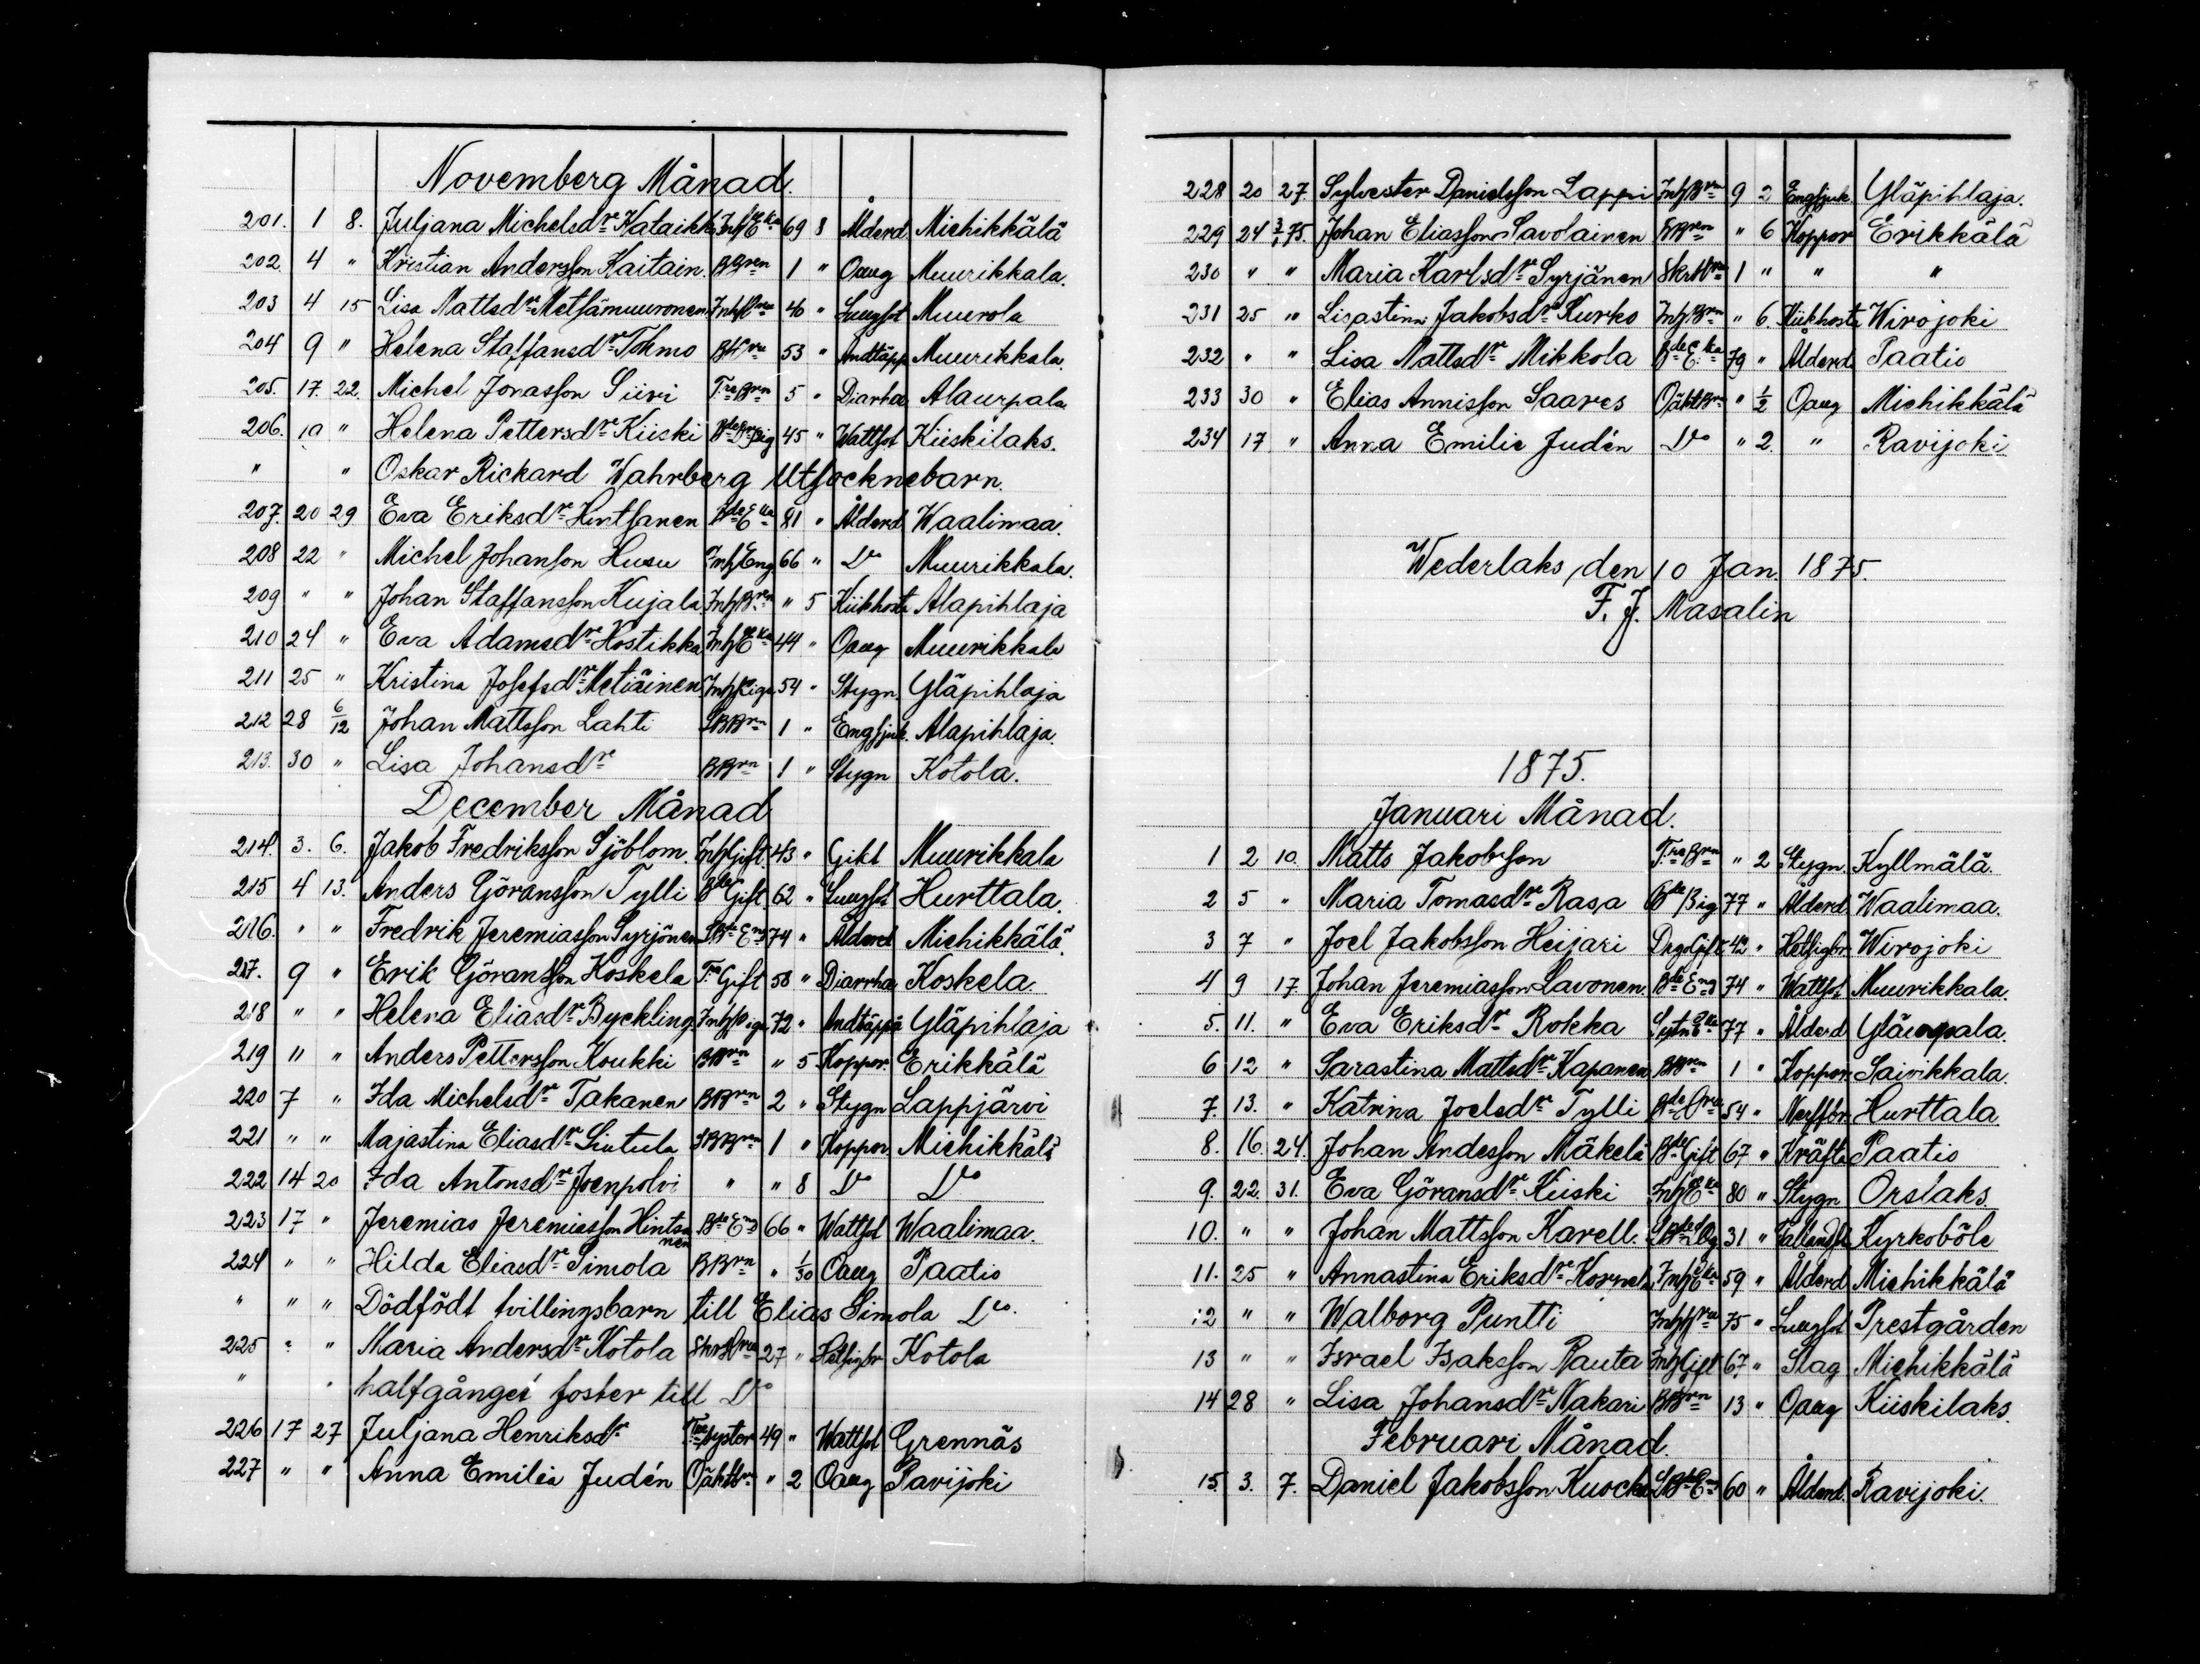 Novemberg Månad.
201. 1 8. Juljana Michelsdr Kataikk Inh Eka 69 8 Ålderd Miehikkälä
202. 4 " Kristian Andersson Kaitain. BBrn 1 " Oäng Muurikkala.
203 4 15 Lisa Mattsdr Metsämuuronen Inh 40 " Lungsot Muurola
204 9 " Helena Staffansdr Tohmo 53 " Andtäpp Muurikkala.
205. 17. 22. Michel Jonasson Siivi Trs Brn 5 " Diarrha Alaurpala
206. 19 " Helena Pettersdr Kiiski 45 " Wattsot Kiiskilaks.
" " Oskar Rickard Wahrberg Utsocknebarn.
207. 20 29 Eva Eriksdr Hintsanen Bde Eka 81 " Ålderd Waalimaa.
208 22 " Michel Johanson Husu Inh Eng 66 " Do Muurikkala.
209 " " Johan Staffansson Kujala Inh Brn " 5 Kikhosta Alapihlaja
210 24 " Eva Adamsdr Hostikka Inh Eka 44 " Oäng Muurikkala
211 25 " Kristina Josefsdr Metiäinen Inh Piga 54 " Stygn. Yläpihlaja
212 28 6/12 Johan Mattsson Lahti SBBrn 1 " Engsjuk. Alapihlaja.
213. 30 " Lisa Johansdr BBrn 1 " Stygn Kotola.
December Månad
214. 3. 6. Jakob Fredriksson Sjöblom. Inh Gift. 43 " Gikt Muurikkala
215 4 13. Anders Göransson Tylli Bde Gift. 62 " Lungsot Hurttala.
216. " " Fredrik Jeremiasson Syrjönen SBde End 74 " Ålderd Miehikkälä.
217. 9 " Erik Göransson Koskela Trs Gift 58 " Diarrha Koskela.
218 " " Helena Eliasdr Byckling Inh Piga 72 " Andtäppa Yläpihlaja
219 11 " Anders Pettersson Koukki BBrn " 5 Koppor. Erikkälä
220 7 " Ida Michelsdr Takanen BBrn 2 " Stygn Lappjärvi
221 " " Majastina Eliasdr Siutula SBBrn 1 " Koppor Miehikkälä
222 14 20 Ida Antonsdr Joenpolvi " " 8 Do Do
223 17 " Jeremias Jeremiasson Hintsanen Bde End 66 " Wattsot Waalimaa.
224 " " Hilda Eliasdr Simola BBrn " 1/30 Oäng Paatio
" " " Dödfödt tvillingsbarn till Elias Simola Do.
225 " " Maria Andersdr Kotola 27 " Hetsigbr Kotola
" " halfgånget foster till Do
226 17 27 Juljana Henriksdr Trs syster 49 " Wattsot Grennäs
227 " " Anna Emilia Judén Oäkt br " 2 Oäng Ravijoki
228 20 27. Sylvester Danielsson Lappi Inh Brn 9 2 Engsjuk. Yläpihlaja.
229 24 3/1 75. Johan Eliasson Savolainen BBrn " 6 Koppor Erikkälä
230 " " Maria Karlsdr Syrjänen 1 " " "
231 25 " Lisastina Jakobsdr Kurko Inh Brn " 6. Kikhosta Wirojoki
232 " " Lisa Mattsdr Mikkola Bde Eka 79 " Ålderd Paatio
233 30 " Elias Annisson Saares Oäkt Br " 1/2 Oäng Miehikkälä
234 17 " Anna Emilie Judén Do " 2. " Ravijoki
Wederlaks, den 10 Jan. 1875.
F. J. Masalin
1875.
Januari Månad.
1 2 10. Matts Jakobsson Trs Brn " 2 Stygn. Kyllmälä.
2 5 " Maria Tomasdr Rasa Bde Pig 77 " Ålderd Waalimaa.
3 7 " Joel Jakobsson Heijari Drg Gift 42 " Hetsigbr Wirojoki
4 9 17 Johan Jeremiasson Lavonen. Bde End 74 " Wattsot Muurikkala.
5. 11. " Eva Eriksdr Rokka Eka 77 " Ålderd Yläurpala.
6 12 " Sarastina Mattsdr Kapanen BBrn 1 " Koppor Saivikkala.
7. 13. " Katrina Joelsdr Tylli 54 " Nerffbr. Hurttala.
8. 16. 24. Johan Andesson Mäkelä Bde Gift 67 " Kräfta Paatio
9. 22. 31. Eva Göransdr Kiiski Inh Eka 80 " Stygn Orslaks
10. " " Johan Mattsson Karell. 31 " Fallandst Kyrkoböle
11. 25 " Annastina Eriksdr Inh Eka 59 " Ålderd Miehikkälä
12 " " Walborg Puntti 75 " Lungsot Prestgården
13 " " Israel Isaksson Rauta Inh Gift 67. " Slag Miehikkälä
14 28 " Lisa Johansdr Nakari BBrn 13 " Oäng Kiiskilaks.
Februari Månad.
15. 3. 7. Daniel Jakobsson 60 " Ålderd. Ravijoki.